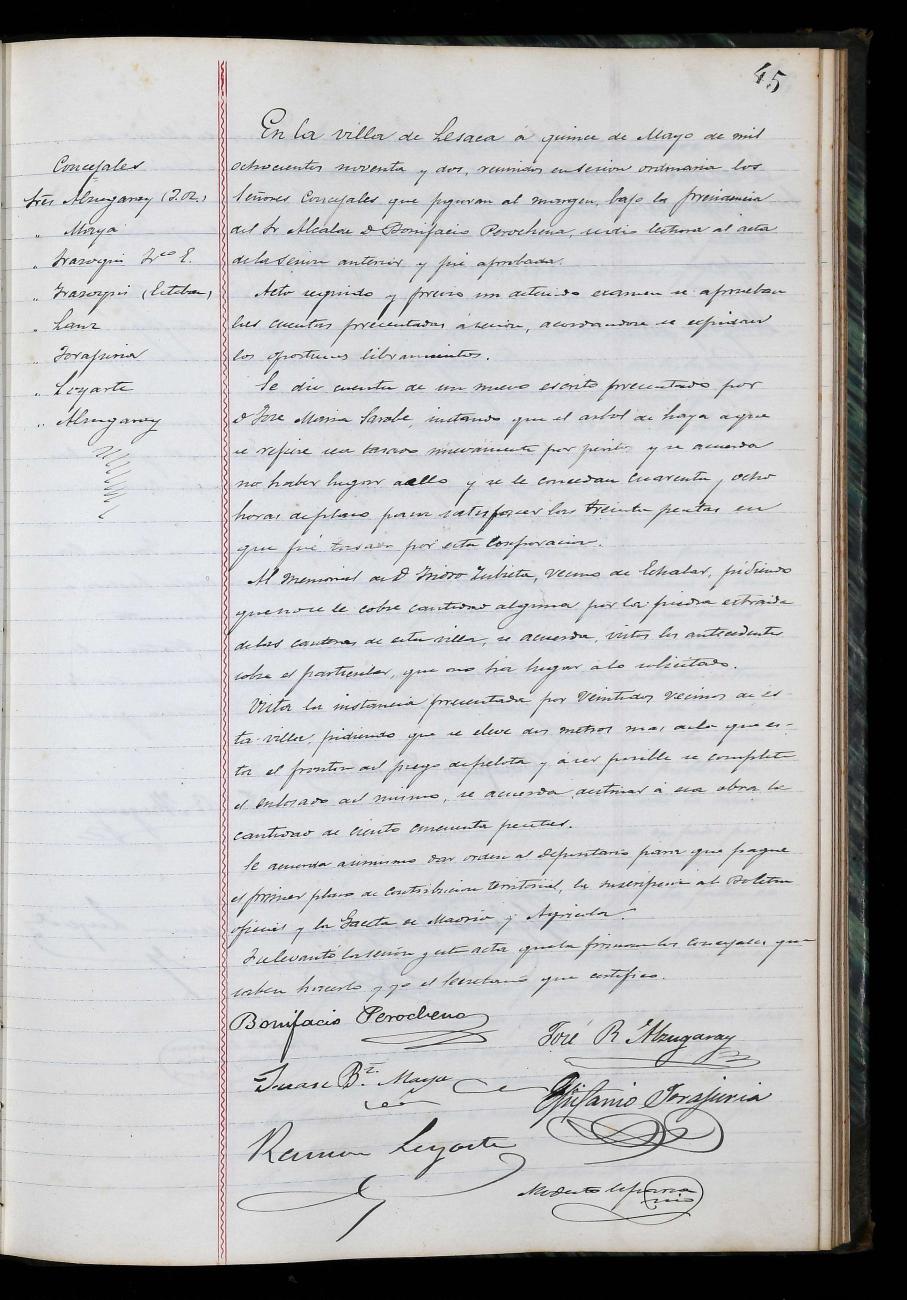 45
Concejales
Sres Alzugaray (J.R.)
" Maya
" Irazoqui Fco E.
" Irazoqui (Esteban)
" Lanz
" Torajuria
" Legarte
" Alzugaray
En la villa de Lesaca á quince de Mayo de mil
ochocientos noventa y dos, reunidos en sesion ordinaria los
Señores Concejales que figuran al margen, bajo la presidencia
del Sr Alcalde D. Bonifacio Perochena, se dió lectura al acta
de la sesion anterior y fué aprobada.
Acto seguido y previo un detenido examen se aprueban
las cuentas presentadas á sesion, acordandose se expidan
los oportunos libramientos.
Se dió cuenta de un nuevo escrito presentado por
D. Jose Maria Sarobe, instando que el arbol de haya a que
se refiere sea tasado nuevamente por perito y se acuerda
no haber lugar a ello y se le concedan cuarenta y ocho
horas de plazo para satisfacer las treinta pesetas en
que fué tasado por esta Corporacion.
Al memorial de D. Isidro Zubieta, vecino de Echalar, pidiendo
que no se le cobre cantidad alguna por la piedra extraida
de las canteras de esta villa, se acuerda, vistos los antecedentes
sobre el particular, que no ha lugar a lo solicitado.
Vista la instancia presentada por veintidos vecinos de es-
ta villa, pidiendo que se eleve dos metros mas de lo que es-
ta el fronton del juego de pelota y á ser posible se complete
el enlosado del mismo, se acuerda destinar á esa obra la
cantidad de ciento cincuenta pesetas.
Se acuerda asimismo dar orden al depositario para que pague
el primer plazo de contribucion territorial, la suscripcion al Boletin
oficial y la Gaceta de Madrid y Agricola.
Se levantó la sesion y esta acta que la firman los concejales que
saben hacerlo y yo el Secretario que certifico.
Bonifacio Perochena
José R. Alzugaray
Juan Bta Maya
Epifanio Torajuria
Ramon Legarte
Modesto